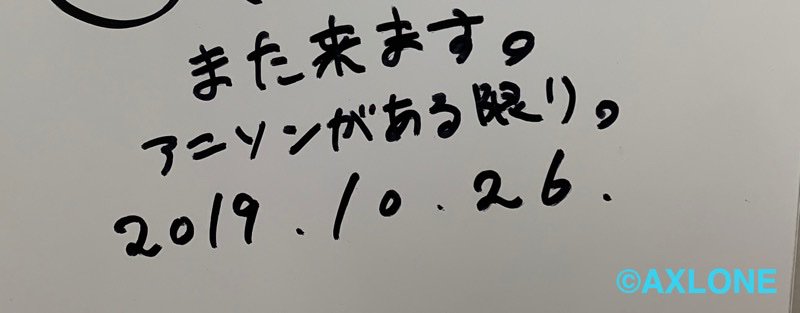 また来ます。
アニソンがある限り。
2019.10.26.
©AXLONE